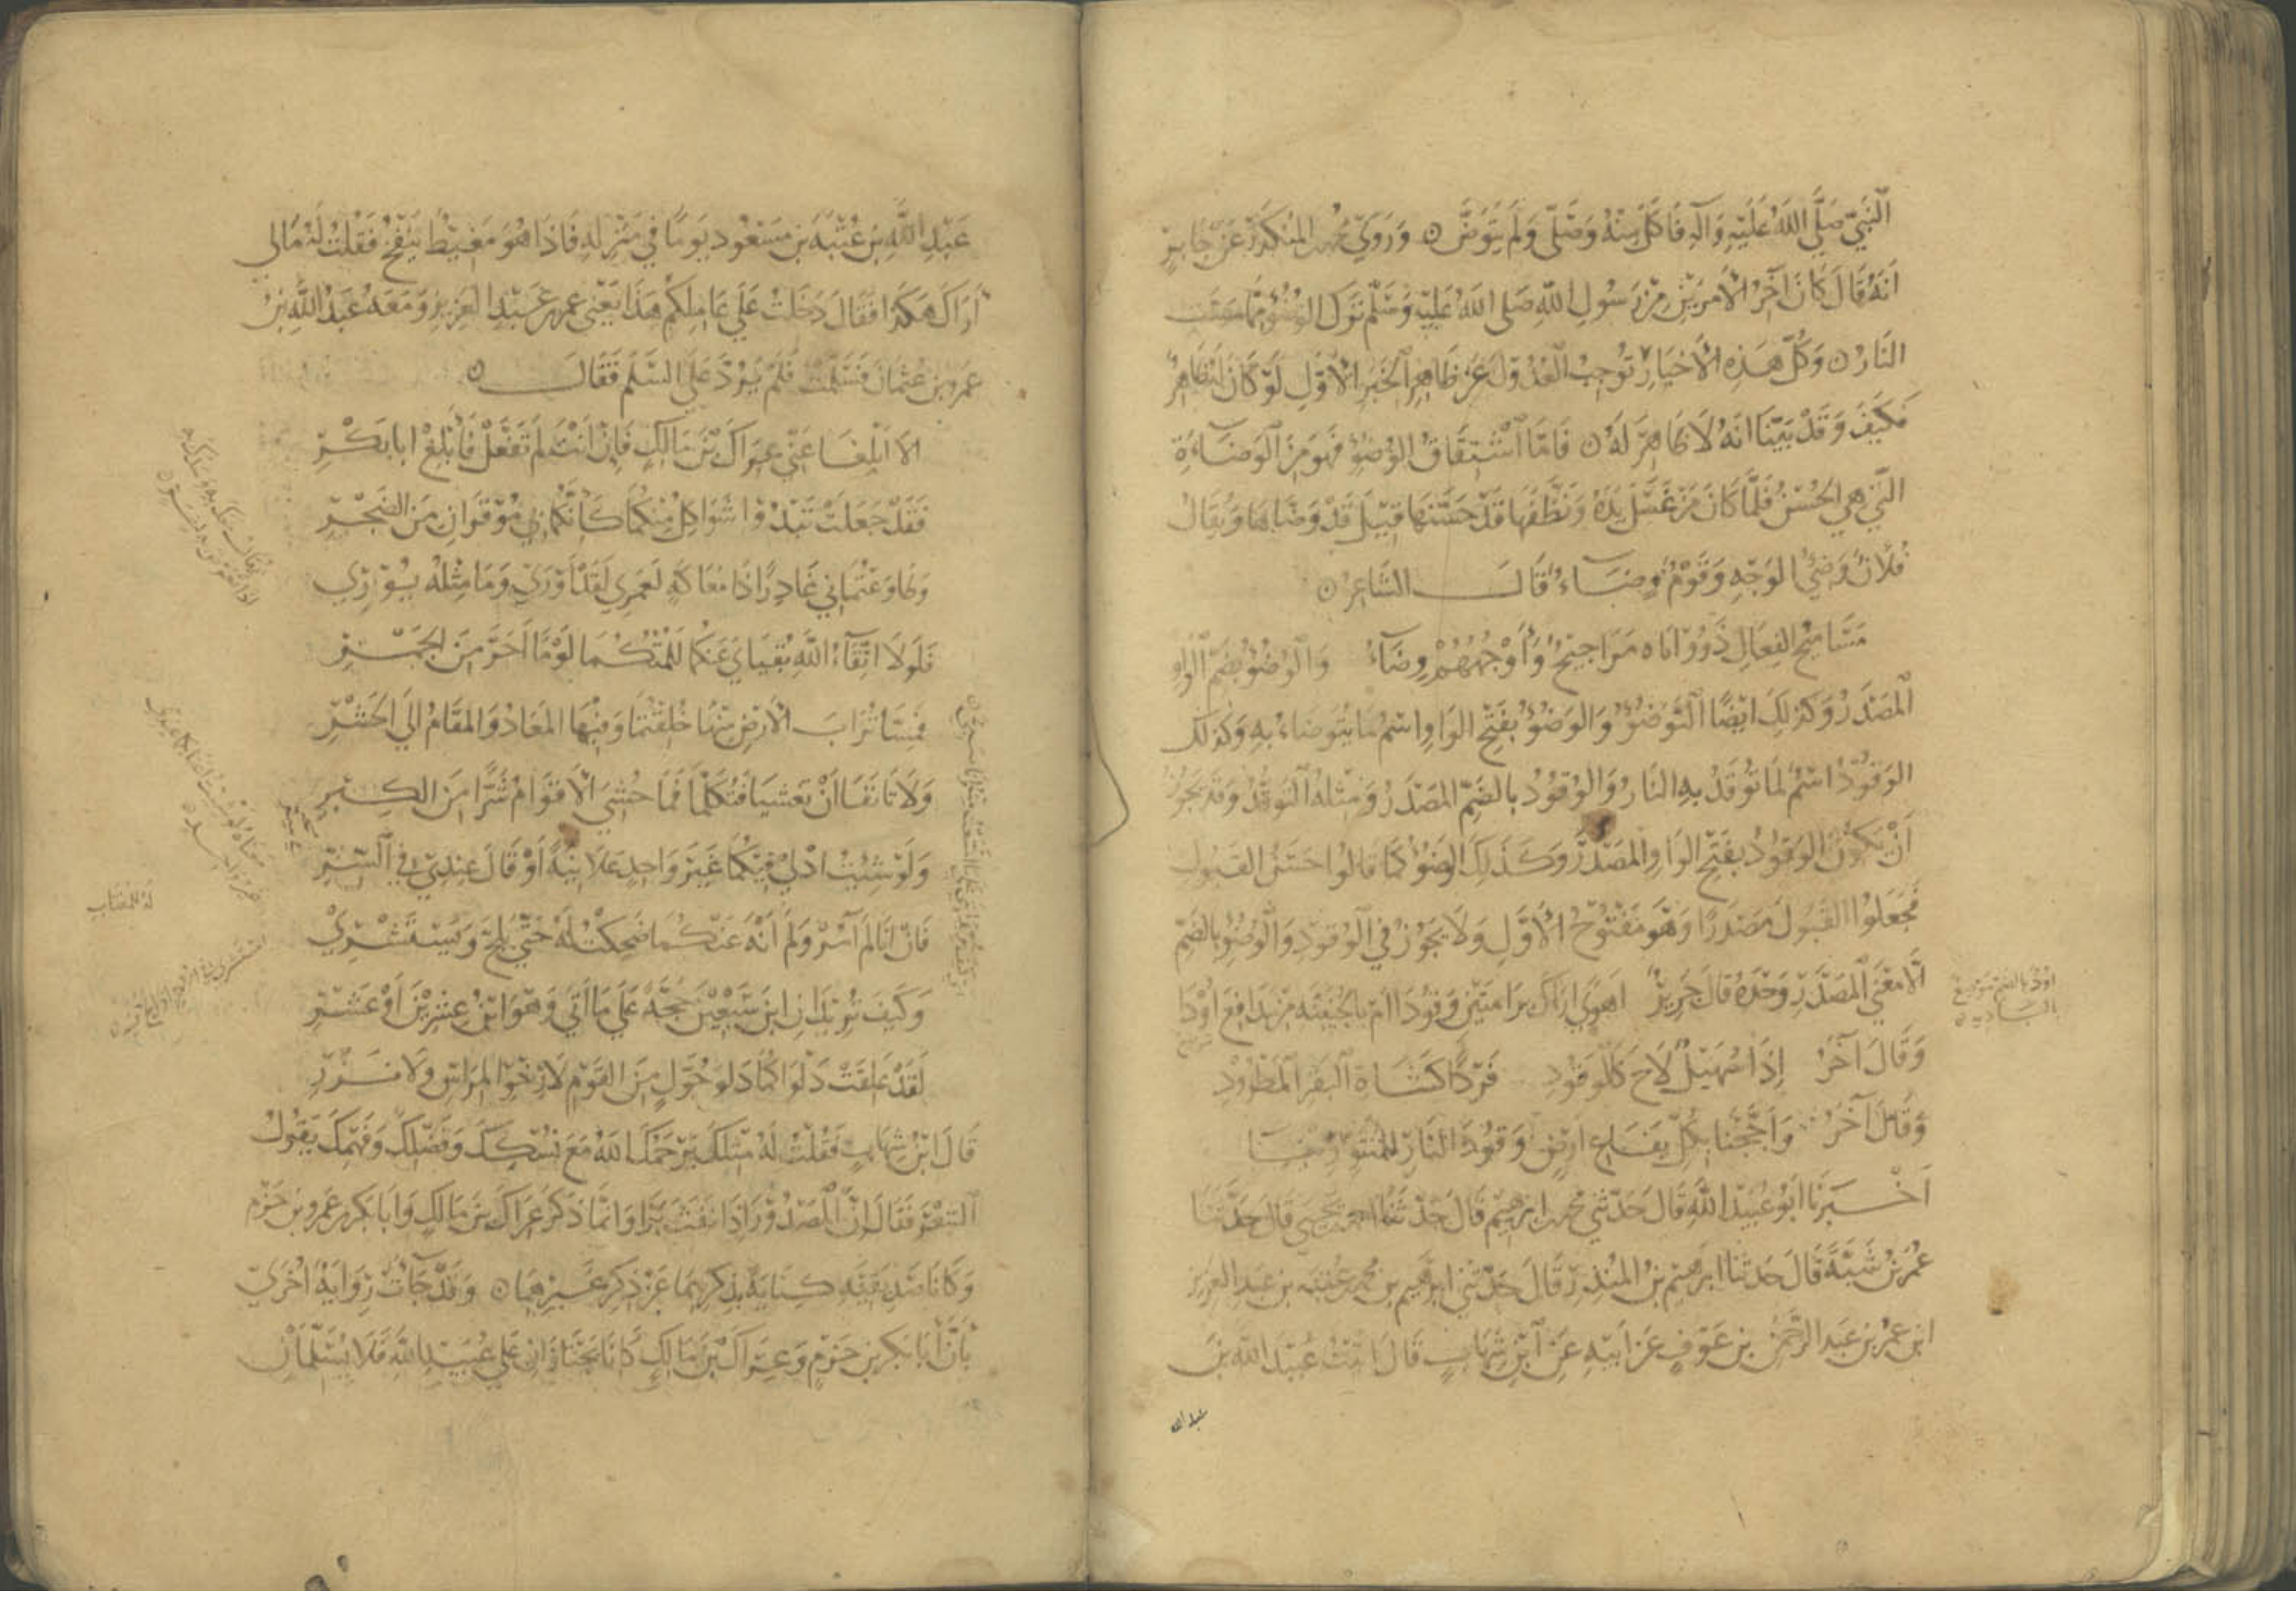 النبي صلى الله عليه وآله فاكل منه وصلى ولم يتوض ۞ وروي محمد بن المنكدر عن جابر
انه قال كان آخر الأمرين من رسول الله صلى الله عليه وسلم ترك الوضوء مما مست
النار ۞ وكل هذه الأخبار توجب العدول عن ظاهر الخبر الأول لو كان له ظاهر
فكيف وقد بينا انه لا ظاهر له ۞ فاما اشتقاق الوضوء فهو من الوضاءة
التي هي الحسن فلما كان من غسل يده ونظفها قد حسنها قيل قد وضاها ويقال
فلان وضيء الوجه وقوم وضاء قال الشاعر ۞
مساميح الفعال ذوو اناه مراجيح واوجههم وضاء والوضوء بضم الواو
المصدر وكذلك ايضا التوضؤ والوضوء بفتح الواو اسم ما يتوضاء به وكذلك
الوقود اسم لما توقد به النار والوقود بالضم المصدر ومثله التوقد وقد يجوز
ان يكون الوقود بفتح الواو المصدر وكذلك الوضوء كما قالوا حسن القبول
فجعلوا القبول مصدرا وهو مفتوح الأول ولا يجوز في الوقود والوضوء بالضم
الا معنى المصدر وحده قال جرير اهوى اراك برامتين وقودا ام بالجنينة من مدافع اودا
اود بالفتح موضع بالبادية
وقال آخر إذا سهيل لاح كالوقود فردا كشاة البقر المطرود
وقال آخر واججنا بكل يفاع ارض وقود النار للمتنورينا
اخبرنا ابو عبيد الله قال حدثني محمد بن ابرهيم قال حدثنا احمد بن يحيى قال حدثنا
عمر بن شبة قال حدثنا ابرهيم بن المنذر قال حدثني ابرهيم بن محمد بن عبد العزيز
ابن عمر بن عبد الرحمن بن عوف عن ابيه عن ابن شهاب قال اتيت عبيد الله بن
عبد الله
عبد الله بن عتبة بن مسعود يوما في منزله فاذا هو مغيظ ينفخ فقلت له مالي
أراك هكذا فقال دخلت على عاملكم هذا يعني عمر بن عبد العزيز ومعه عبد الله بن
عمرو بن عثمان فسلمت فلم يرد علي السلم فقال ۞
الا ابلغا عني عراك بن مالك فان انت لم تفعل فأبلغ ابا بكر
فقد جعلت تبدوا شواكل منكما كأنكما بي موقران من الصخر
فلولا اتقاء الله بقياي عنكما للمتكما لوما احر من الجمر
فمسا تراب الأرض منها خلقتما وفيها المعاد والمقام الى الحشر
ولا تانفا ان تغشيا فتكلما فما حشي الأقوام شرا من الكبر
ولو شئت ادلى فيكما غير واحد علانية أو قال عندي في الستر
فان انا لم آمر ولم أنه عنكما ضحكت له حتى يلج ويستشري
وكيف تريدان ابن سبعين حجة على ما اتى وهو ابن عشرين أو عشر
لقد علقت دلوا كما دلو حول من القوم لا رخو المراس ولا نزر
قال ابن شهاب فقلت له مثلك يرحمك الله مع نسكك وفضلك وفهمك يقول
الشعر فقال ان المصدور إذا نفث برا وانما ذكر عراك بن مالك وابا بكر بن عمرو بن حزم
وكانا صديقيه كناية بذكرهما عن ذكر غيرهما ۞ وقد جاءت رواية اخرى
بأن أبا بكر بن حزم وعراك بن مالك كانا يجتازان على عبيد الله فلا يسلمان